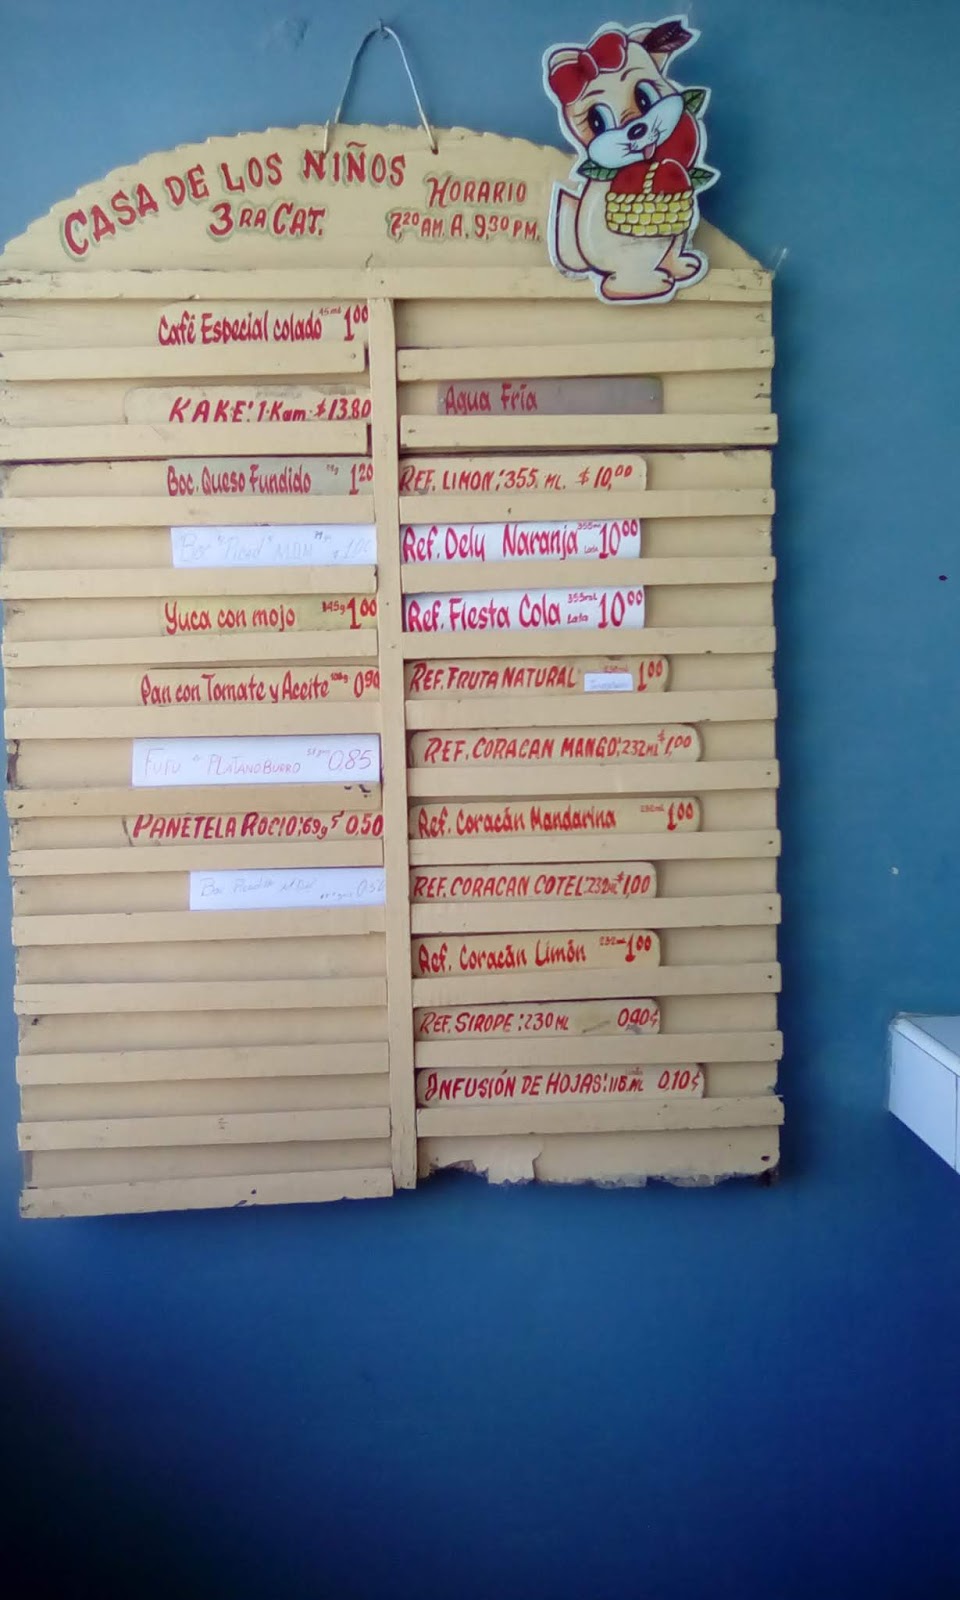 CASA DE LOS NIÑOS
3RA CAT.
HORARIO
7,20 AM. A. 9,30 PM.
Café Especial colado 45 mL 1 00
KAKE: 1 Kgm. $13.80
Boc. Queso Fundido 1 20
Boc MDM 1.00
Yuca con mojo 145g 1 00
Pan con Tomate y Aceite 0,90
FUFU de PLATANO BURRO 0,85
PANETELA ROCIO: 69g $ 0,50
Boc MDM
Agua Fría
REF. LIMON: 355. ML. $ 10,00
Ref. Dely Naranja 355ml Lata 10 00
Ref. Fiesta Cola 355mL Lata 10 00
REF. FRUTA NATURAL 1 00
REF. CORACAN MANGO: 232 ML $1,00
Ref. Coracán Mandarina 232mL 1 00
REF. CORACAN COTEL: 232ML $1,00
Ref. Coracán Limón 232mL 1 00
REF. SIROPE: 230 ML 0.40 ¢
INFUSIÓN DE HOJAS: 115 ML 0,10 ¢